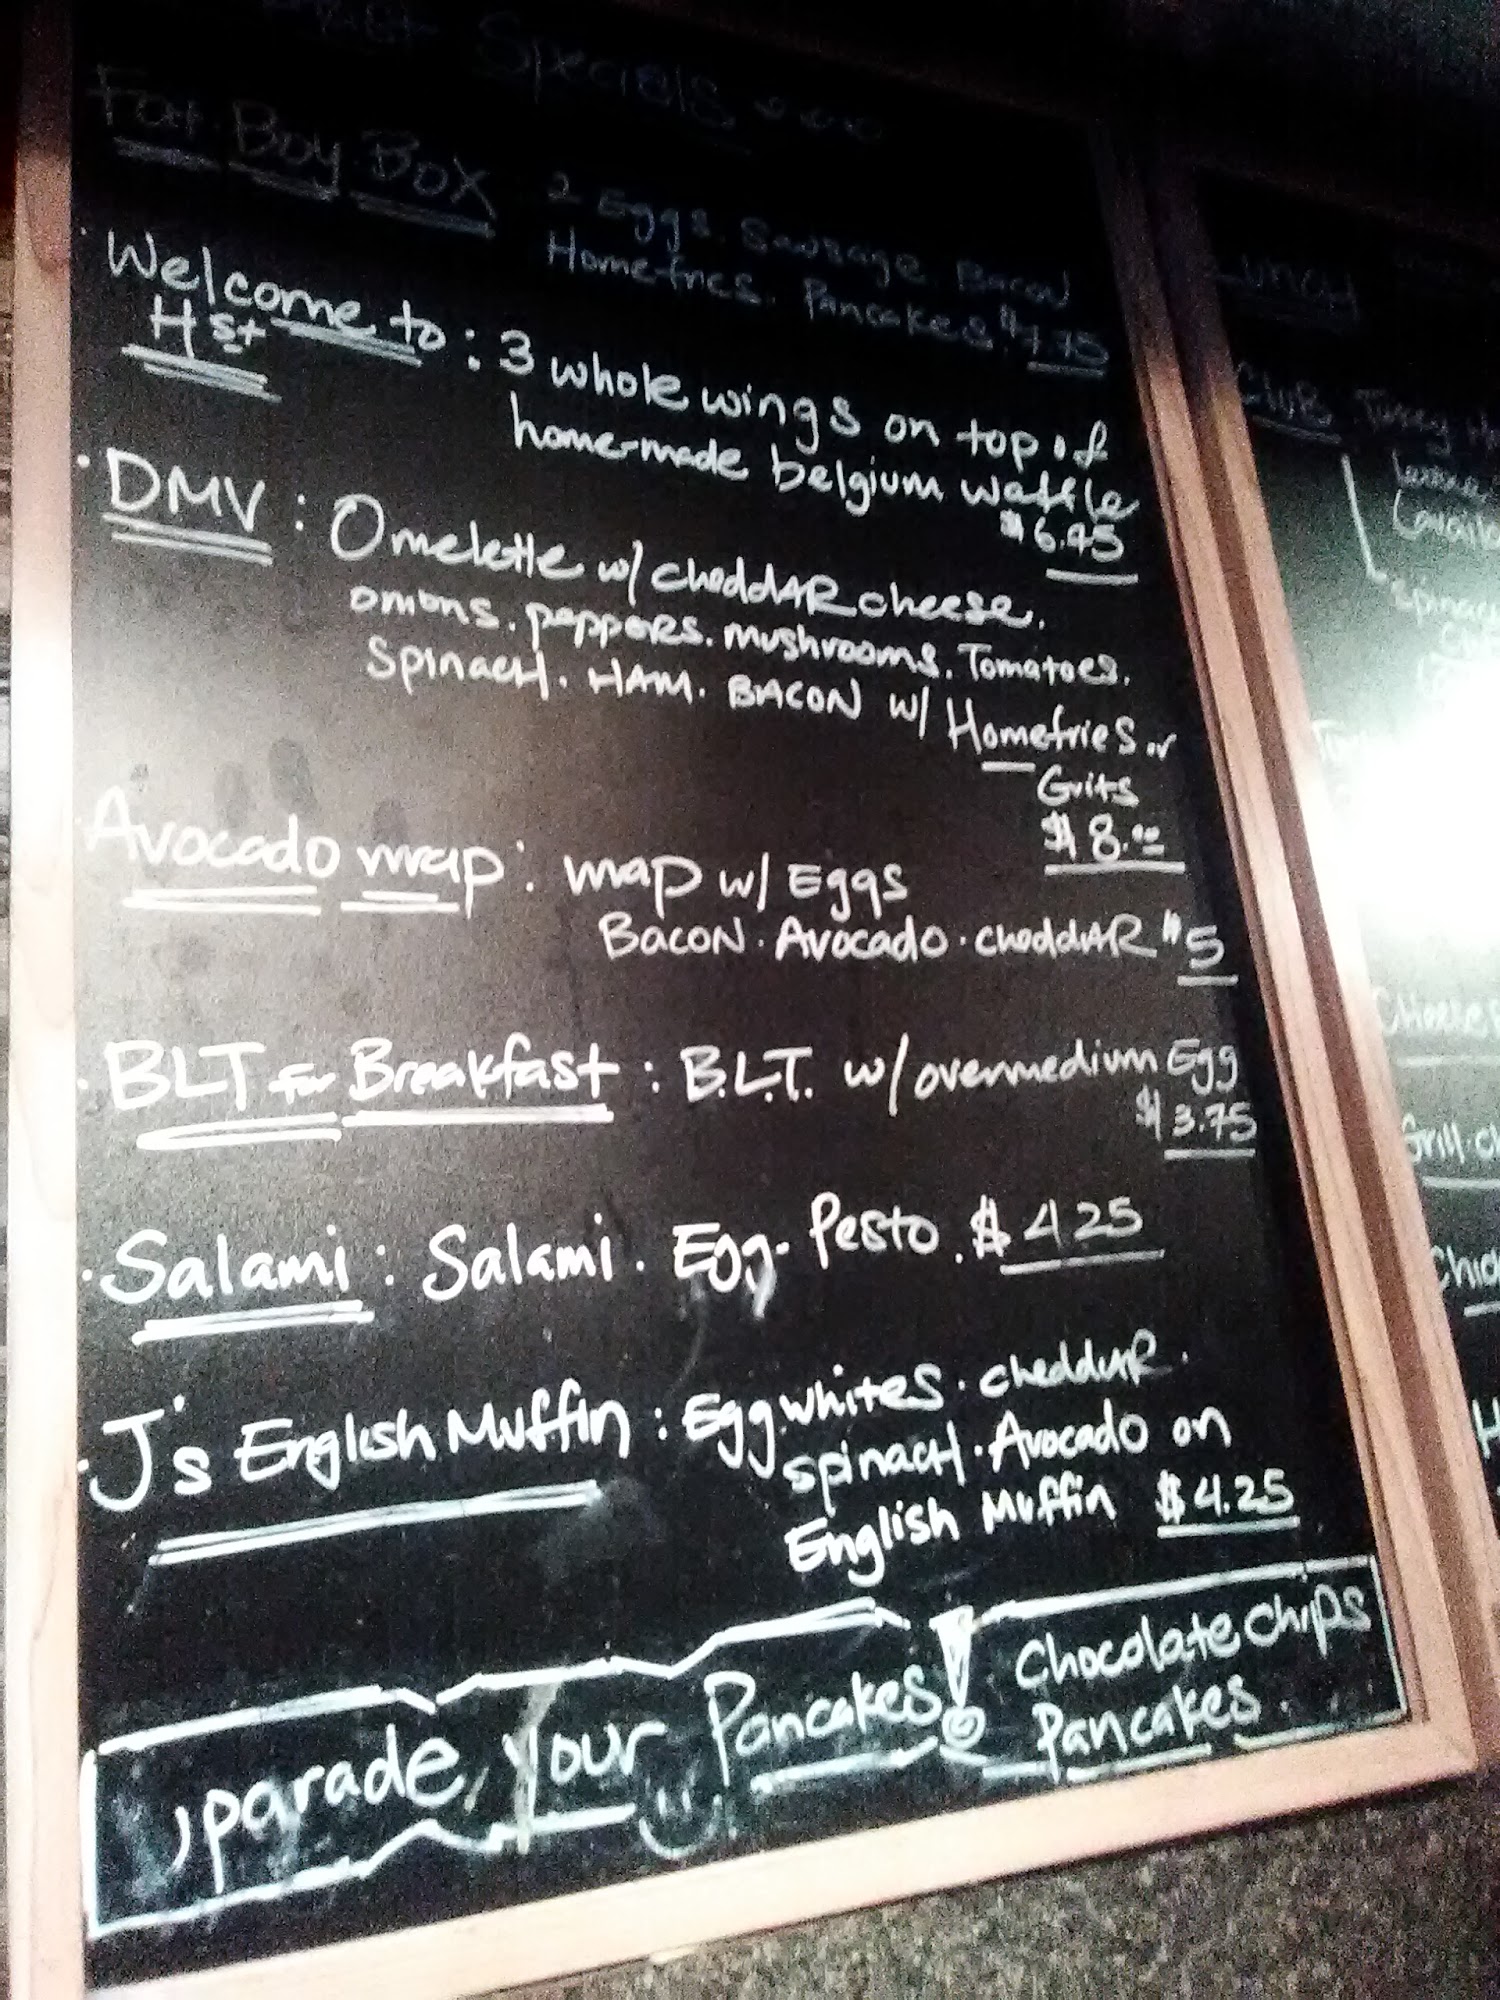 Specials
Fat Boy Box 2 Eggs. Sausage. Bacon
Homefries. Pancakes. $7.75
Welcome to : 3 whole wings on top of
H St
home-made belgium waffle
$6.95
DMV : Omelette w/ cheddAR cheese.
onions. peppers. mushrooms. Tomatoes.
Spinach. HAM. BACON w/ Homefries or
Grits
$8.00
Avocado wrap : wrap w/ Eggs
BACON. Avocado. cheddAR $5
BLT for Breakfast : B.L.T. w/ overmedium Egg
$3.75
Salami : Salami. Egg. Pesto. $4.25
J's English Muffin : Egg whites. cheddAR.
spinach. Avocado on
English Muffin $4.25
Upgrade your Pancakes! Chocolate chips
Pancakes.
Lunch
Club Turkey
spinach
Cheese
Grill